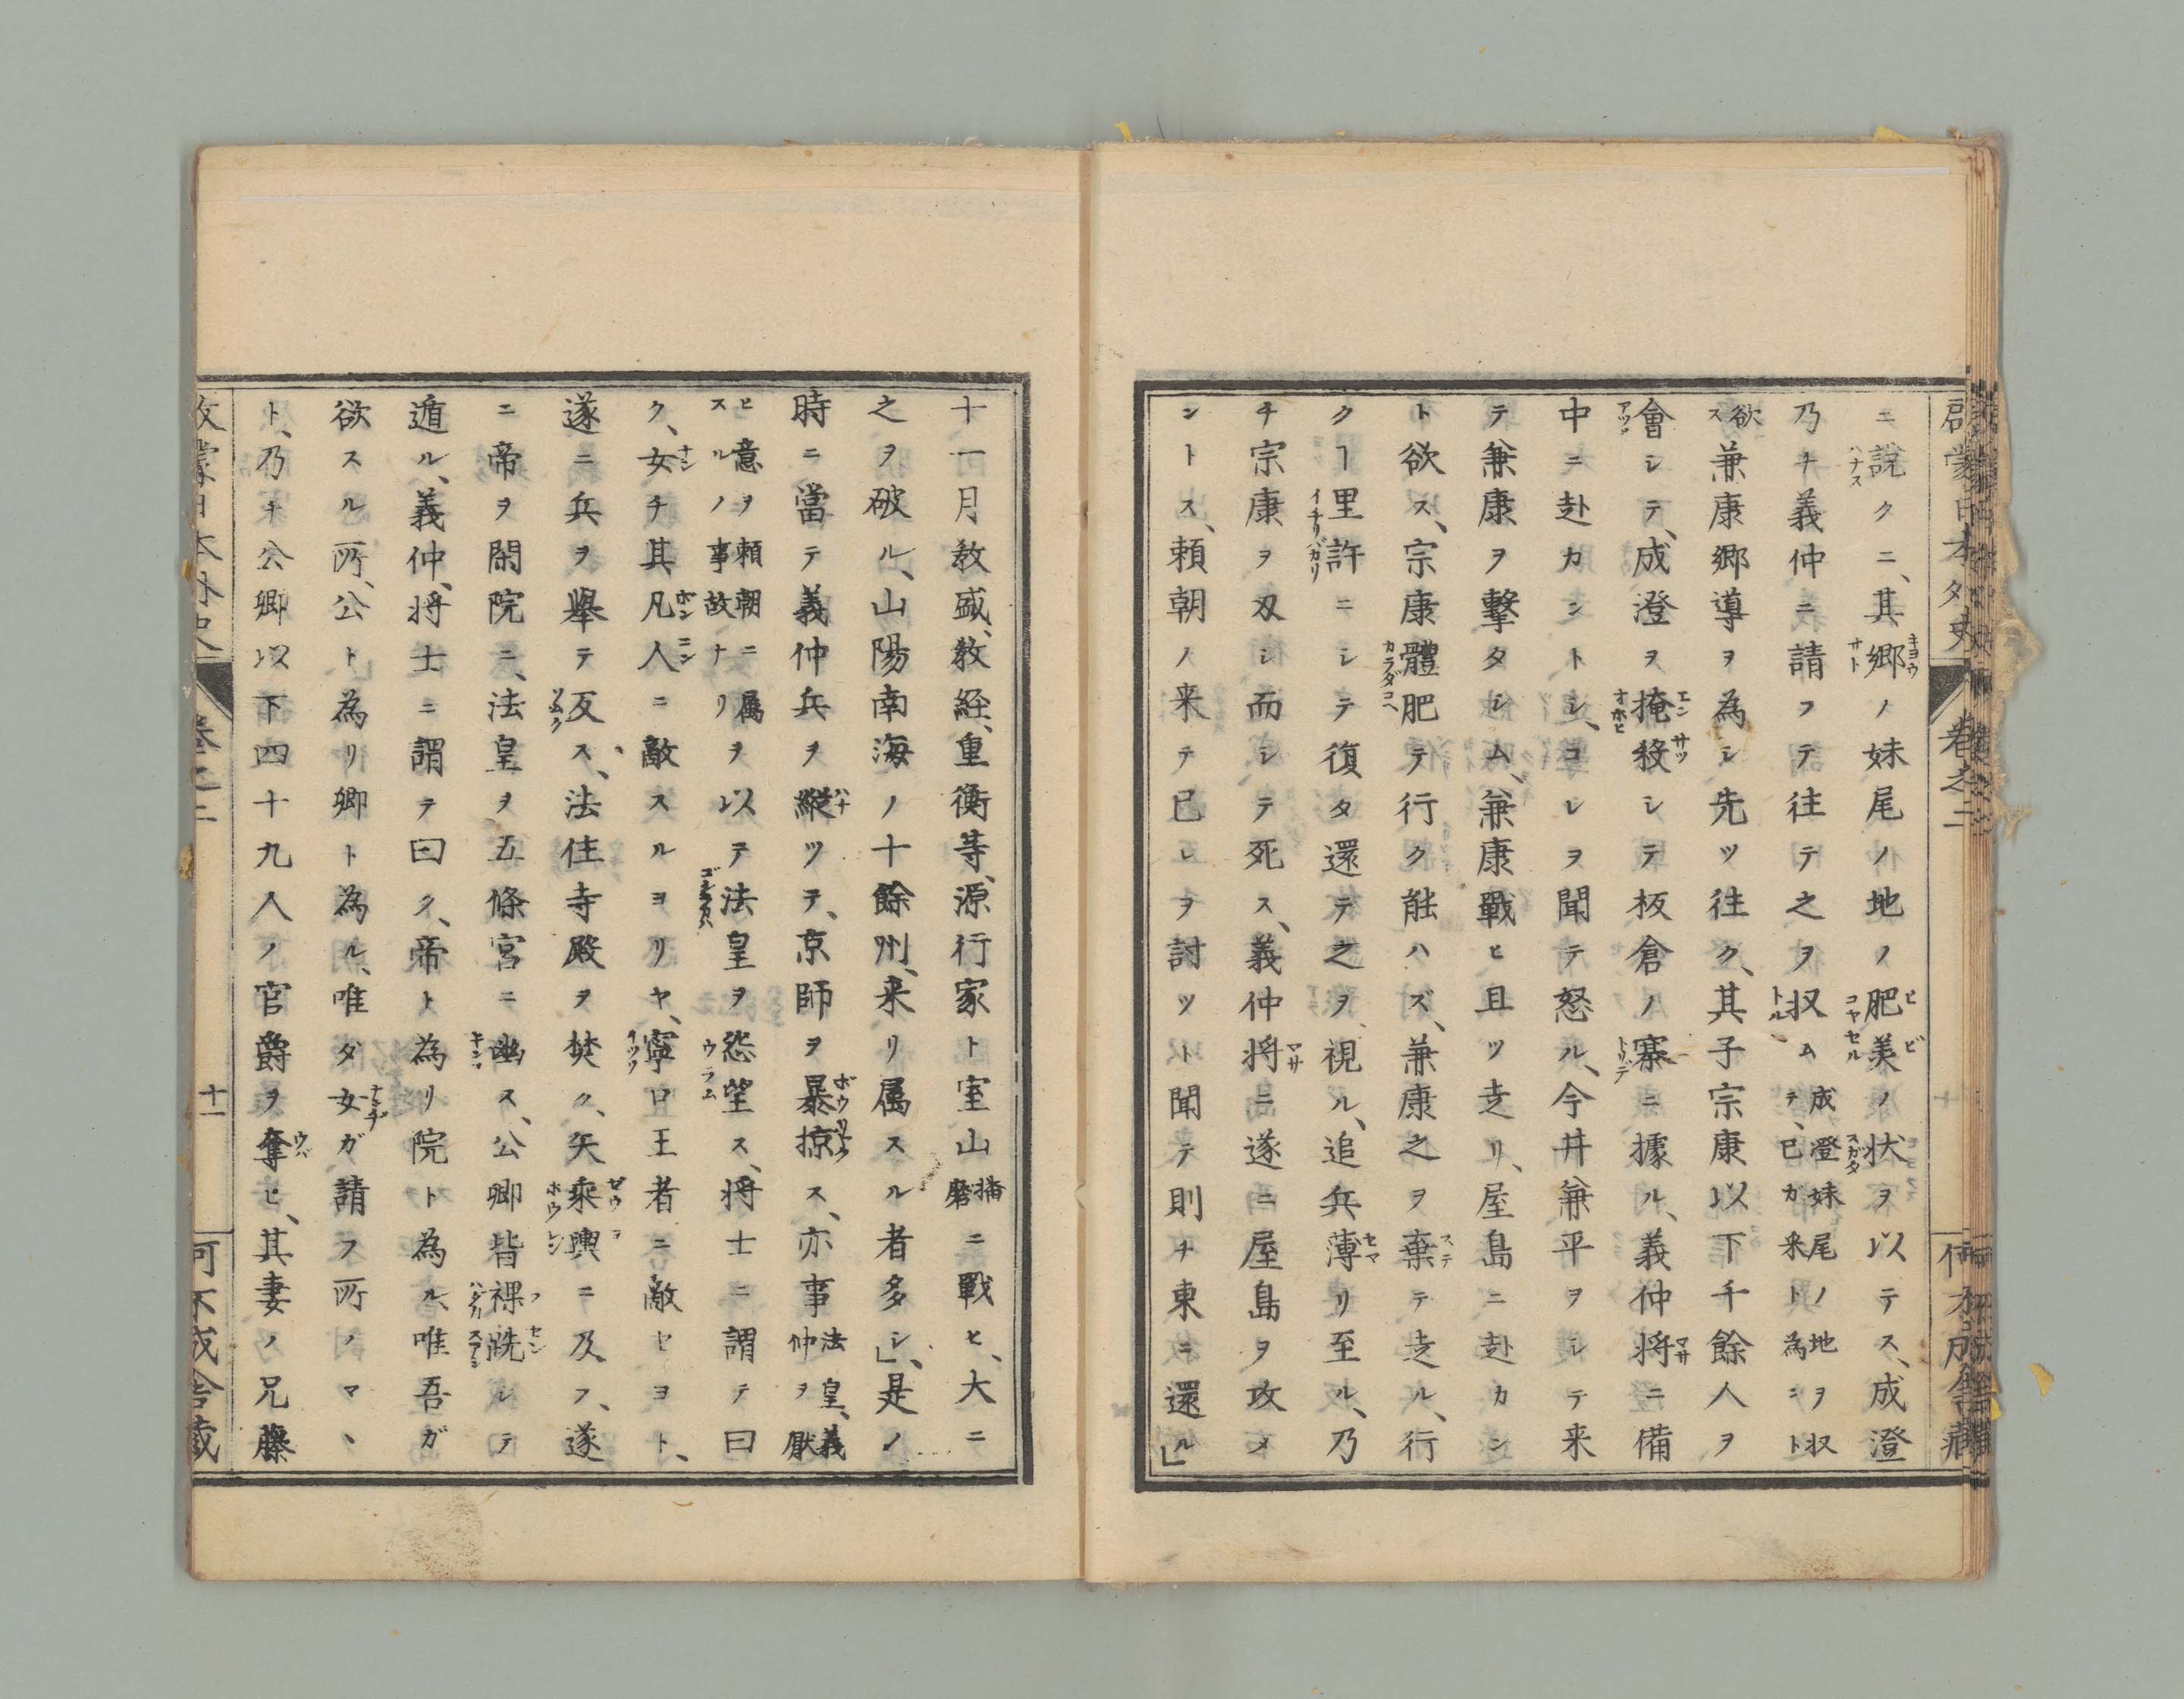 ニ説クニ、其郷ノ妹尾ノ地ノ肥美ノ状ヲ以テス、成澄
乃チ義仲ニ請フテ往テ之ヲ収ムテ、成澄妹尾ノ地ヲ収已ガ釆ト為ニト
欲ス兼康郷導ヲ為シ先ツ往ク、其子宗康以下千餘人ヲ
會シテ、成澄ヲ掩殺シテ板倉ノ寨ニ據ル、義仲将ニ備
中ニ赴カントシ、コレヲ聞テ怒ル、今井兼平ヲシテ来
テ兼康ヲ撃タシム、兼康戰ヒ且ツ走リ、屋島ニ赴カン
ト欲ス、宗康體肥テ行ク能ハズ、兼康之ヲ棄テ走ル、行
クヿ里許ニシテ復タ還テ之ヲ視ル、追兵薄リ至ル、乃
チ宗康ヲ刄シ而シテ死ス、義仲将ニ遂ニ屋島ヲ攻メ
ントス、頼朝ノ来テ已レヲ討ツト聞テ則チ東ニ還ル」
十一月敎盛、敎経、重衡等、源行家ト室山播磨ニ戰ヒ、大ニ
之ヲ破ル、山陽南海ノ十餘州、来リ属スル者多シ」、是ノ
時ニ當テ義仲兵ヲ縦ツテ、京師ヲ暴掠ス、亦事法皇、義仲ヲ厭
ヒ意ヲ頼朝ニ属スルノ事故ナリヲ以テ法皇ヲ怨望ス、将士ニ謂テ曰
ク、女チ其凡人ニ敵スルヨリヤ、寧ロ王者ニ敵セヨト、
遂ニ兵ヲ擧テ反ス、法住寺殿ヲ焚ク、矢乘輿ニ及フ、遂
ニ帝ヲ閑院ニ、法皇ヲ五條宮ニ幽ス、公卿皆裸跣シテ
遁ル、義仲、将士ニ謂テ曰ク、帝ト為リ院ト為ル、唯吾ガ
欲スル所、公ト為リ卿ト為ル、唯ダ女ガ請フ所ノマヽ
ト、乃チ公卿以下四十九人ノ官爵ヲ奪ヒ、其妻ノ兄藤
巻之二
十一